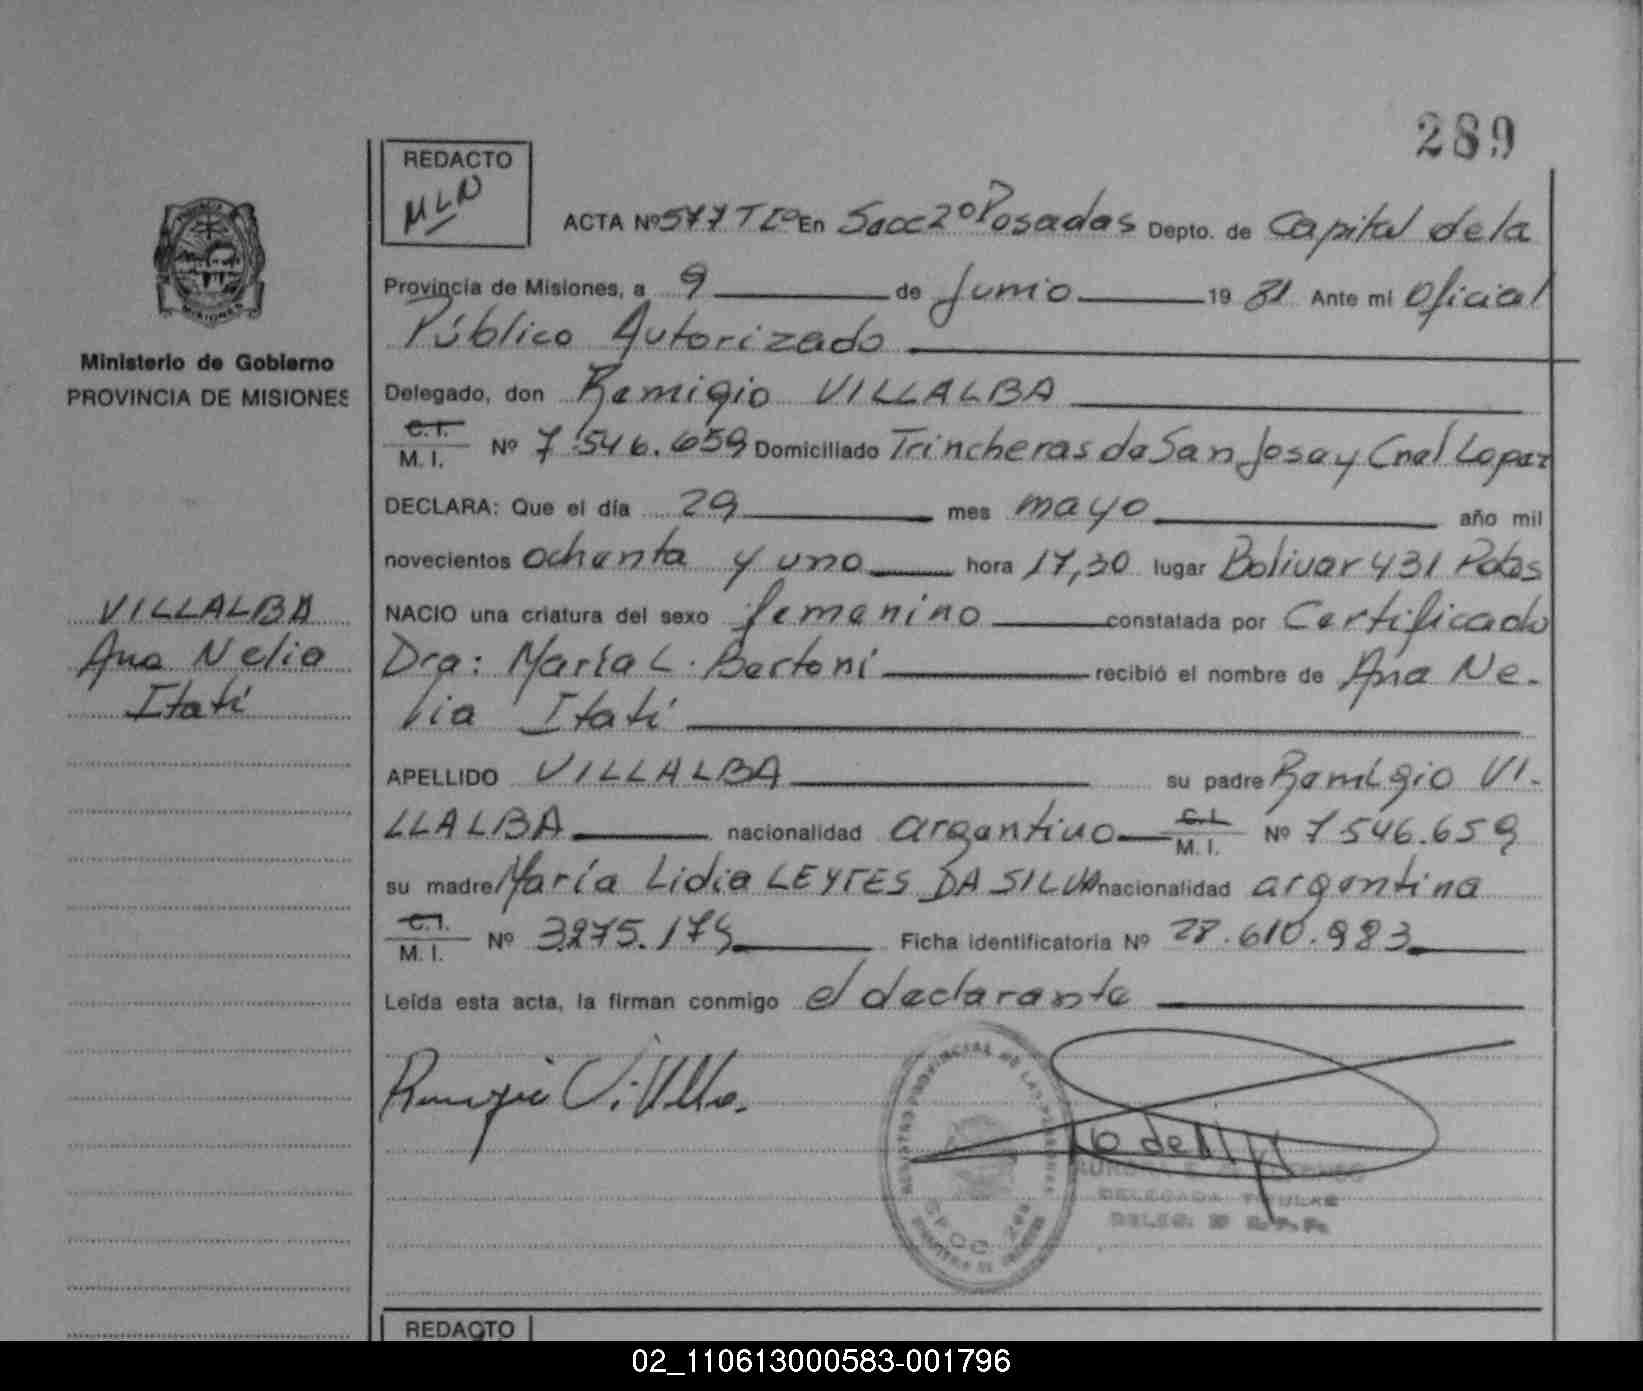 289
REDACTO
MLN
ACTA Nº 577 Tº Iº En Secc 2º Posadas Depto. de Capital de la
Provincia de Misiones, a 9 de Junio 19 81 Ante mi Oficial
Público Autorizado
Ministerio de Gobierno
PROVINCIA DE MISIONES
Delegado, don Remigio VILLALBA
C.I. M. I. Nº 7.546.659 Domiciliado Trincheras de San Jose y Cnel Lopez
DECLARA: Que el día 29 mes mayo año mil
novecientos ochenta y uno hora 17,30 lugar Bolivar 431 Pdas
VILLALBA
Ana Nelia
Itatí
NACIO una criatura del sexo femenino constatada por Certificado
Dra: María L. Bertoni recibió el nombre de Ana Ne-
lia Itatí
APELLIDO VILLALBA su padre Remigio VI-
LLALBA nacionalidad argentino C.I. M. I. Nº 7.546.659
su madre María Lidia LEYTES DA SILVA nacionalidad argentina
C.I. M. I. Nº Ficha identificatoria Nº 28.610.983
Leída esta acta, la firman conmigo el declarante
REGISTRO PROVINCIAL DE LAS PERSONAS
DELEGADA TITULAR
REDACTO
02_110613000583-001796